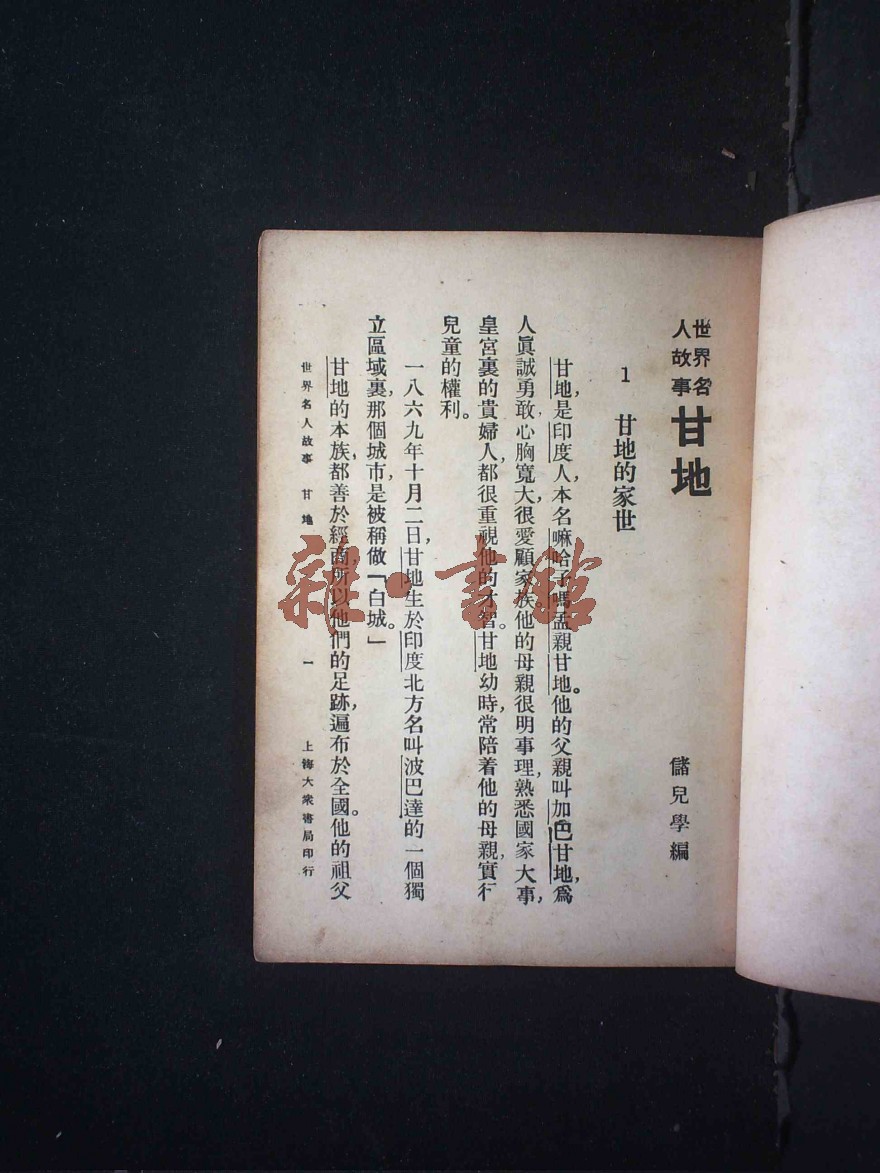 世界名
人故事
甘地
儲兒學編
1 甘地的家世
甘地，是印度人，本名嘛哈子嗎孟親甘地。他的父親叫加巴甘地，爲
人眞誠勇敢，心胸寬大，很愛顧家族，他的母親很明事理，熟悉國家大事，
皇宮裏的貴婦人，都很重視他的才智。甘地幼時，常陪着他的母親，實行
兒童的權利。
一八六九年十月二日，甘地生於印度北方名叫波巴達的一個獨
立區域裏，那個城市，是被稱做「白城。」
甘地的本族，都善於經商，所以他們的足跡，遍布於全國。他的祖父
世界名人故事 甘地 一 上海大衆書局印行
雜·書館